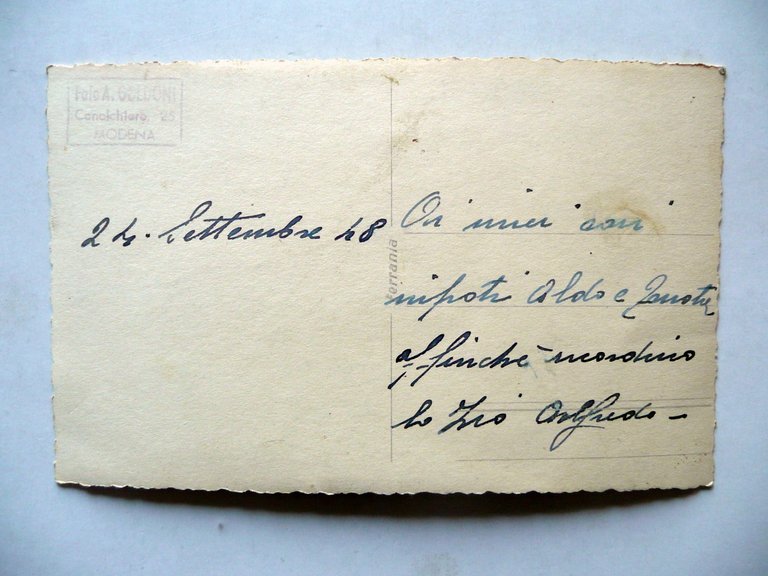 Foto A. GOLDONI
Canalchiaro, 25
MODENA
24. Settembre 48
Ai miei cari
nipoti Aldo e
affinché ricordino
lo Zio Alfredo -
Ferrania